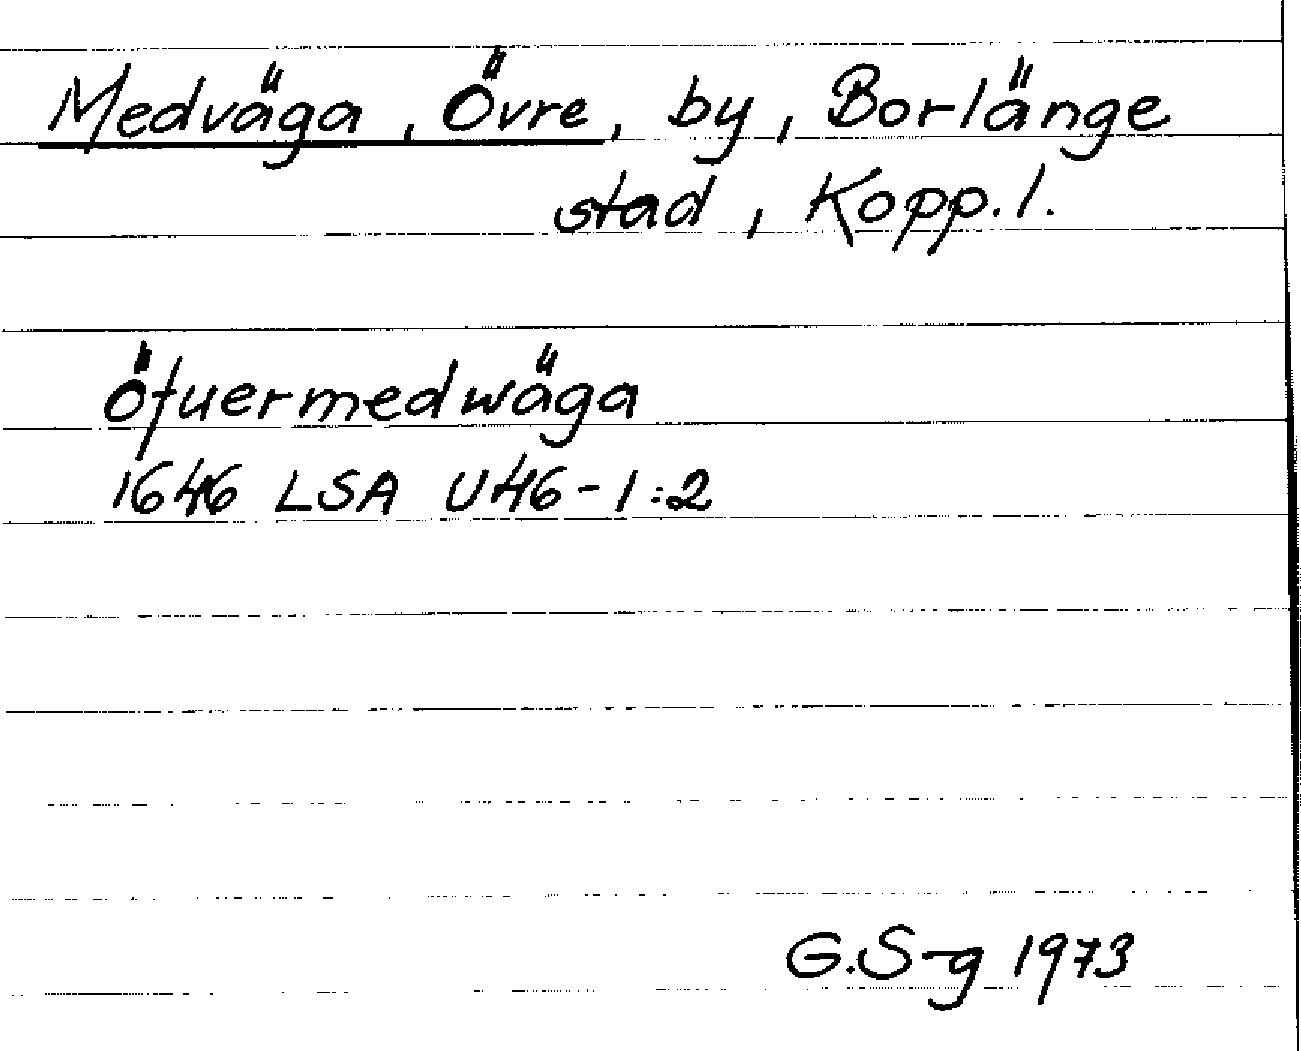 Medväga, Övre, by, Borlänge
stad, Kopp.l.
öfuermedwäga
1646 LSA U46-1:2
G.S-g 1973